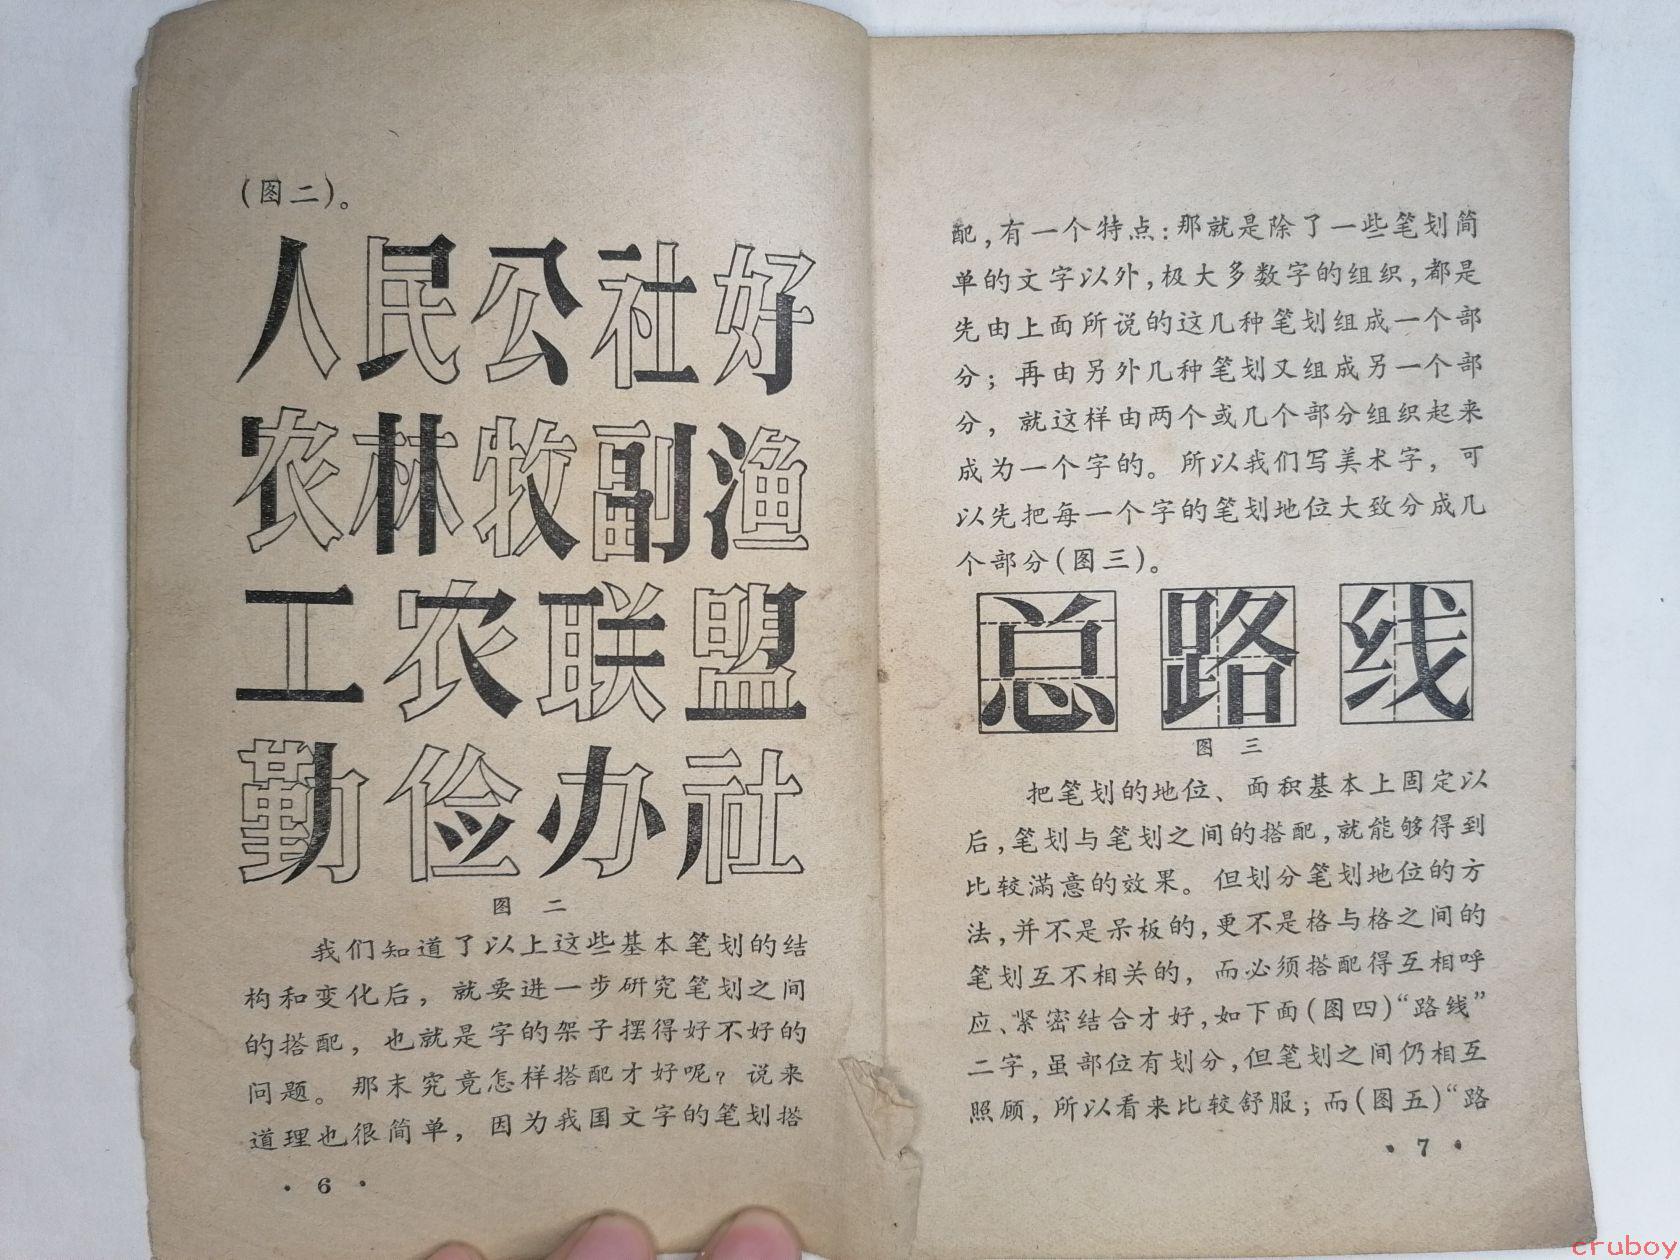 (图二)。
人民公社好
农林牧副渔
工农联盟
勤俭办社
图 二
我们知道了以上这些基本笔划的结
构和变化后，就要进一步研究笔划之间
的搭配，也就是字的架子摆得好不好的
问题。那末究竟怎样搭配才好呢？说来
道理也很简单，因为我国文字的笔划搭
· 6 ·
配，有一个特点：那就是除了一些笔划简
单的文字以外，极大多数字的组织，都是
先由上面所说的这几种笔划组成一个部
分；再由另外几种笔划又组成另一个部
分，就这样由两个或几个部分组织起来
成为一个字的。所以我们写美术字，可
以先把每一个字的笔划地位大致分成几
个部分(图三)。
总路线
图 三
把笔划的地位、面积基本上固定以
后，笔划与笔划之间的搭配，就能够得到
比较滿意的效果。但划分笔划地位的方
法，并不是呆板的，更不是格与格之间的
笔划互不相关的，而必须搭配得互相呼
应、紧密结合才好，如下面(图四)“路线”
二字，虽部位有划分，但笔划之间仍相互
照顾，所以看来比较舒服；而(图五)“路
· 7 ·
cruboy